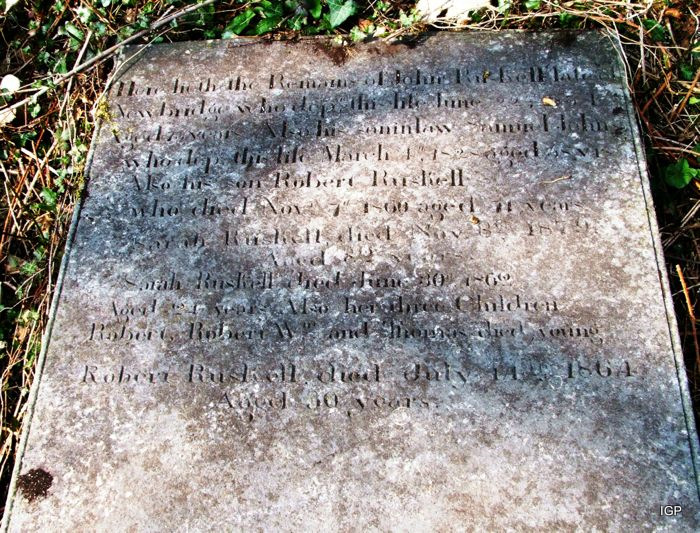 Here lieth the Remains of John Ruskell late of
Newbridge who dep. this life June
Aged years Also his son in law Samuel John
who dep. this life March 4th 1828 aged
Also his son Robert Ruskell
who died Novr 7th 1860 aged 71 years
Sarah Ruskell, died Novr 1870
Aged years
Sarah Ruskell died June 30th 1862
Aged 24 years Also her three Children
Robert, Robert Wm and Thomas died young
Robert Ruskell, died July 14th 1864
Aged 30 years.
IGP